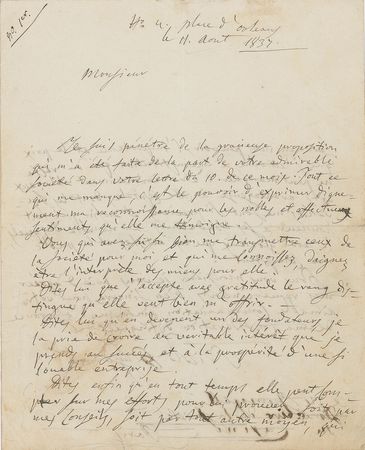 No 4, place d'Orléans
le 11. Aout 1837.
Monsieur
Je suis pénétré de la gracieuse proposition
qui m'a été faite de la part de votre admirable
Société dans votre lettre du 10. de ce mois. Tout ce
qui me manque, c'est le pouvoir d'exprimer digne-
ment ma reconnoissance pour les nobles et affectueux
sentiments qu'elle me temoigne
Vous, qui avez si bien me transmettre ceux de
la Société pour moi et qui me connoissez, daignez
être l'interprète des miens pour elle.
Dites lui que j'accepte avec gratitude le rang dis-
tingué qu'elle veut bien m'offrir.
Dites lui qu'en devenant un des fondateurs je
la prie de croire au veritable intérêt que je
prends au succès et à la prospérité d'une si
louable entreprise.
Dites enfin qu'en tout temps elle peut com-
pter sur mes efforts pour soit par
mes conseils, soit par tout autre moyen, qui